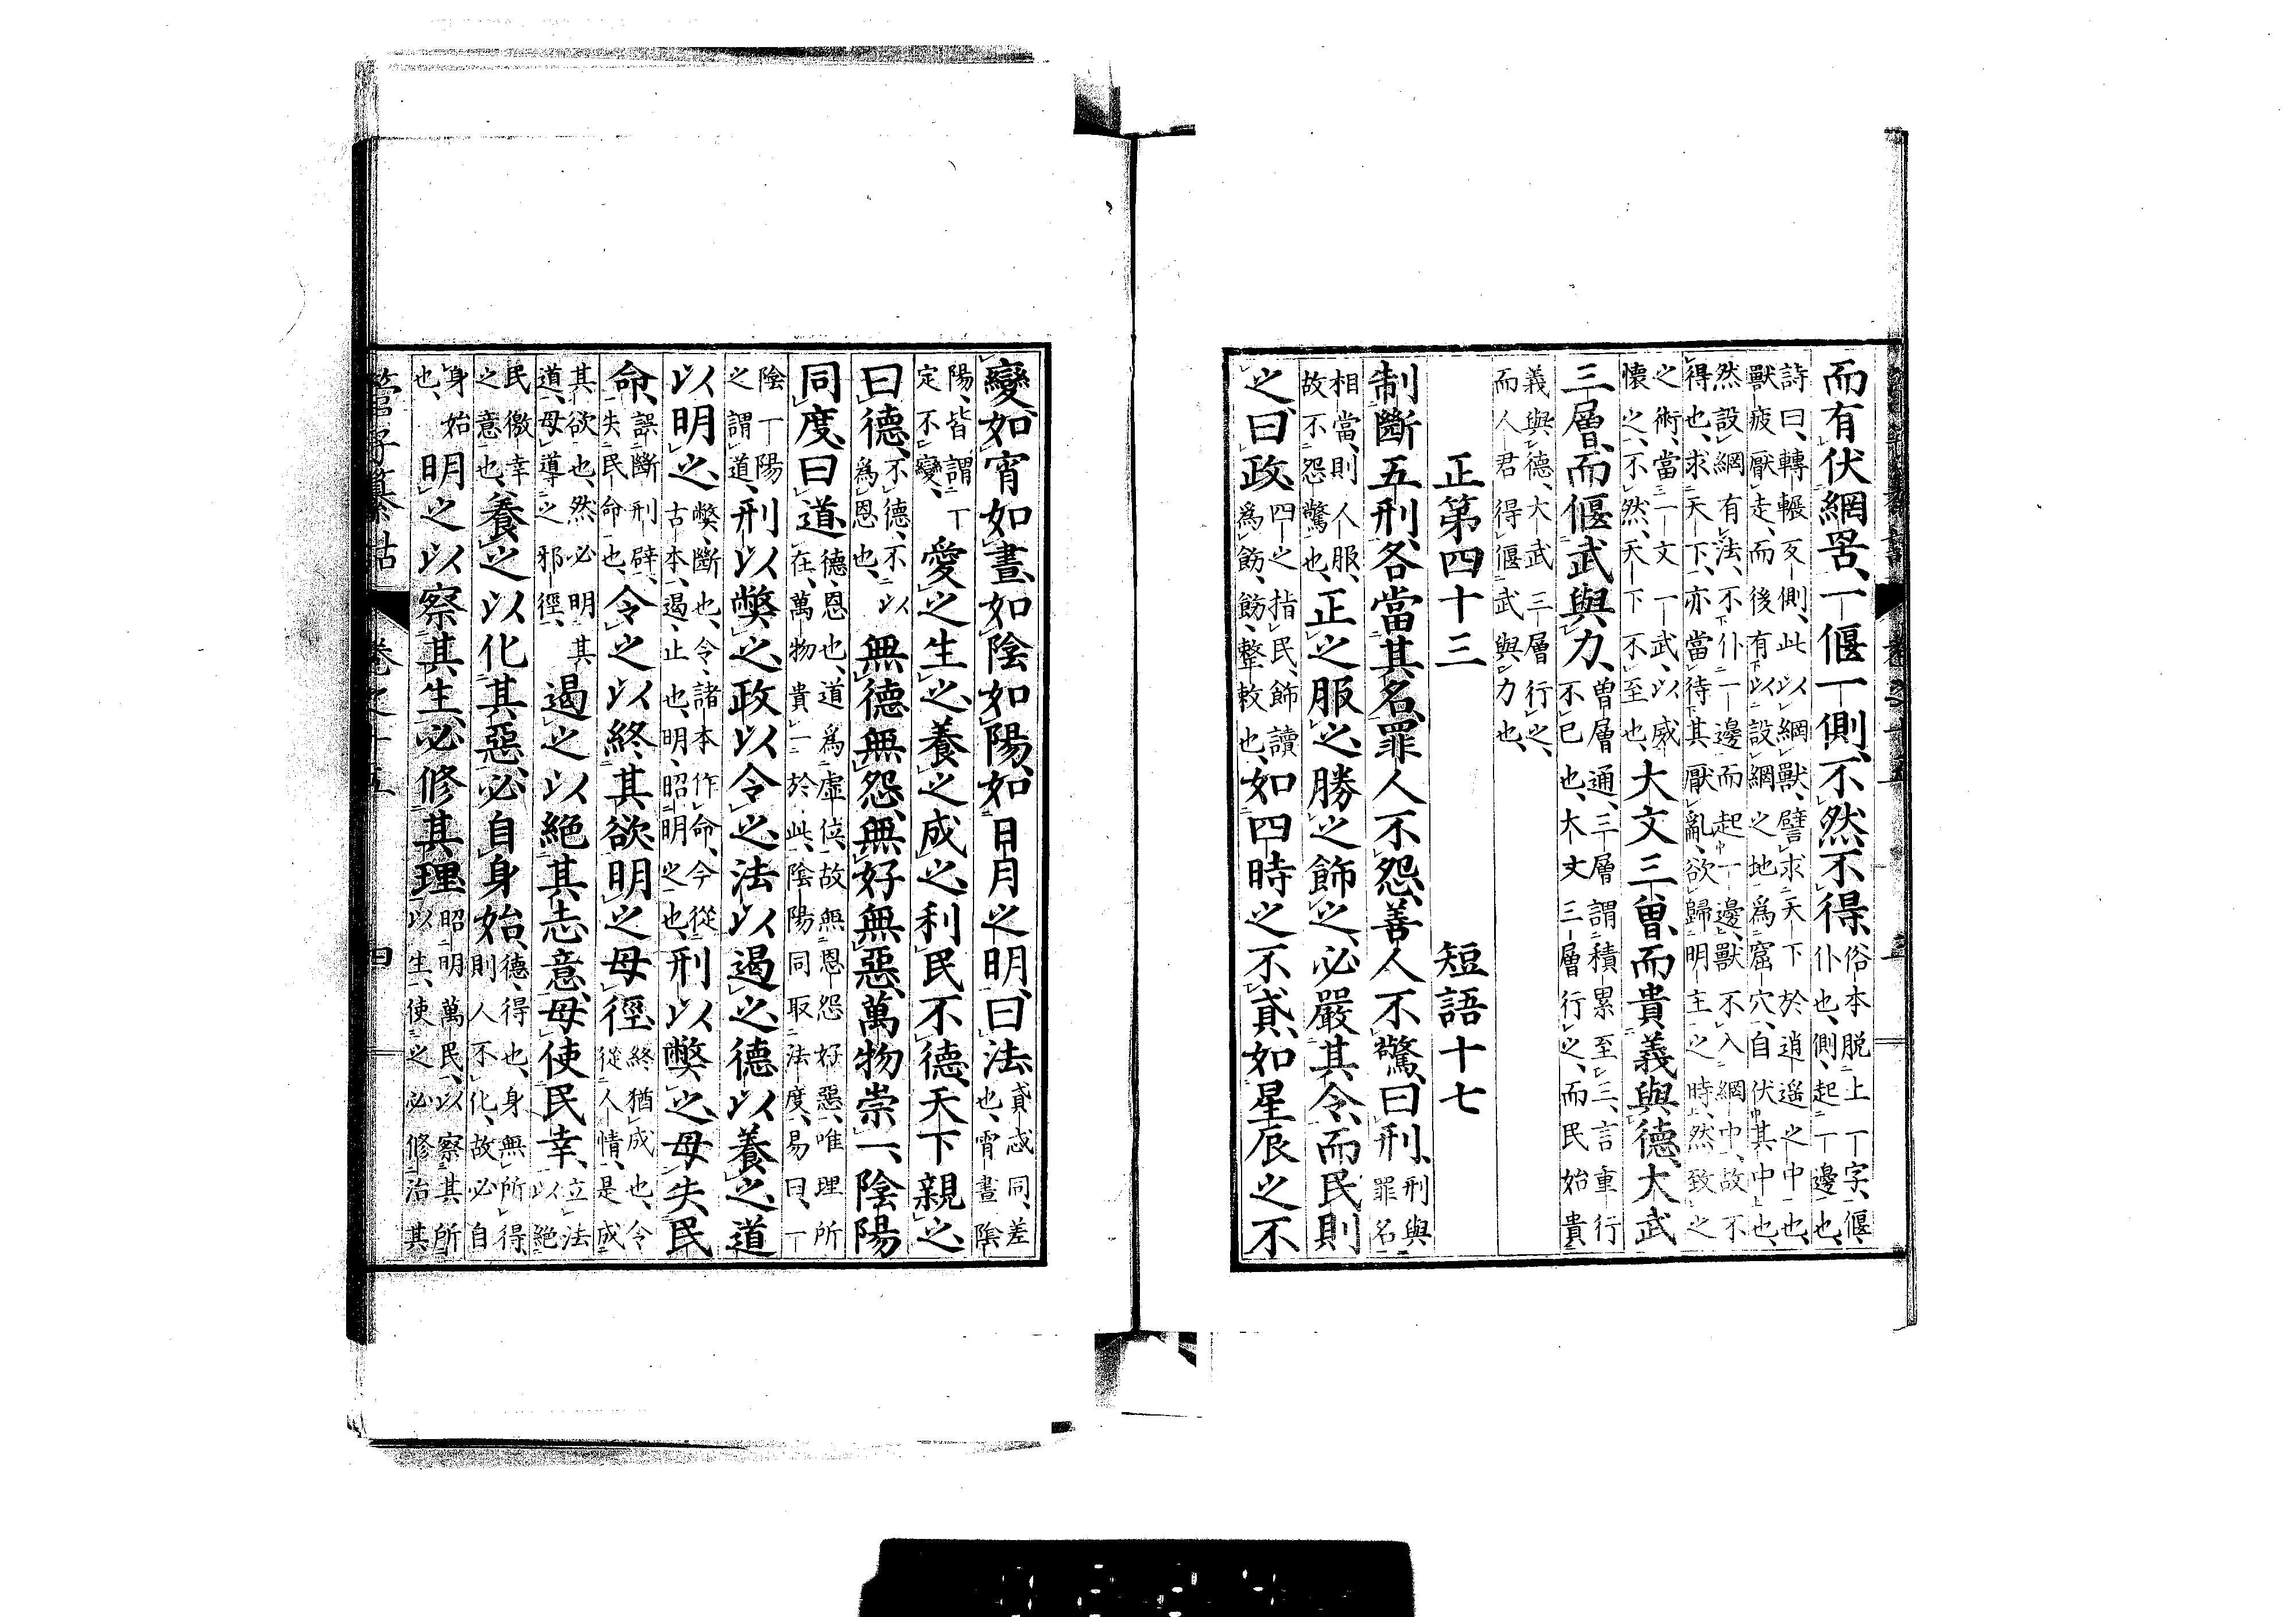 而有伏網罟、一偃一側、不然不得、俗本脱上一字、偃、
仆也、側、起一邊也、
詩曰、轉輾反側、此以網獸、譬求天下於逍遙之中也、
獸疲厭走、而後有以設網之地、為窟穴、自伏其中也、
然設網有法、不仆一邊而起一邊、獸不入網中、故不
得也、求天下、亦當待其厭亂欲歸明主之時、然致之
之術、當一文一武、以威
懷之、不然、天下不至也、大文三曾、而貴義與德、大武
三層、而偃武與力、曾層通、三層謂積累至三、言重行
不已也、大文三層行之、而民始貴
義與德、大武三層行之、
而人君得偃武與力也、
正第四十三 短語十七
制斷五刑、各當其名、罪人不怨、善人不驚、曰刑、刑與
罪名
相當、則人服、
故不怨驚也、正之服之、勝之飾之、必嚴其令、而民則
之、曰政、四之指民、飾讀
為飭、飭、整敕也、如四時之不貣、如星辰之不
變、如宵如晝、如陰如陽、如日月之明、曰法、貣忒同、差
也、宵晝陰
陽、皆謂一
定不變、愛之生之、養之成之、利民不德、天下親之、
曰德、不德、不以
為恩也、無德無怨、無好無惡、萬物崇一、陰陽
同度、曰道、德、恩也、道為虛位、故無恩怨好惡、唯理所
在、萬物貴一於此、陰陽同取法度、易曰、一
陰一陽
之謂道、刑以弊之、政以令之、法以遏之、德以養之、道
以明之、弊、斷也、令、諸本作命、今從
古本、遏、止也、明、昭明之也、刑以弊之、毋失民
命、誤斷刑辟、
失民命也、令之以終其欲、明之毋徑、終猶成也、令
從人情、是成
其欲也、然必明其
道、毋導之邪徑、遏之以絕其志意、毋使民幸、立法
以絕
民徼幸
之意也、養之以化其惡、必自身始、德、得也、身無所得
則人不化、故必自
身始
也、明之以察其生、必修其理、昭明萬民、以察其所
以生、使之必修治其
管子纂詁 卷之十五 四